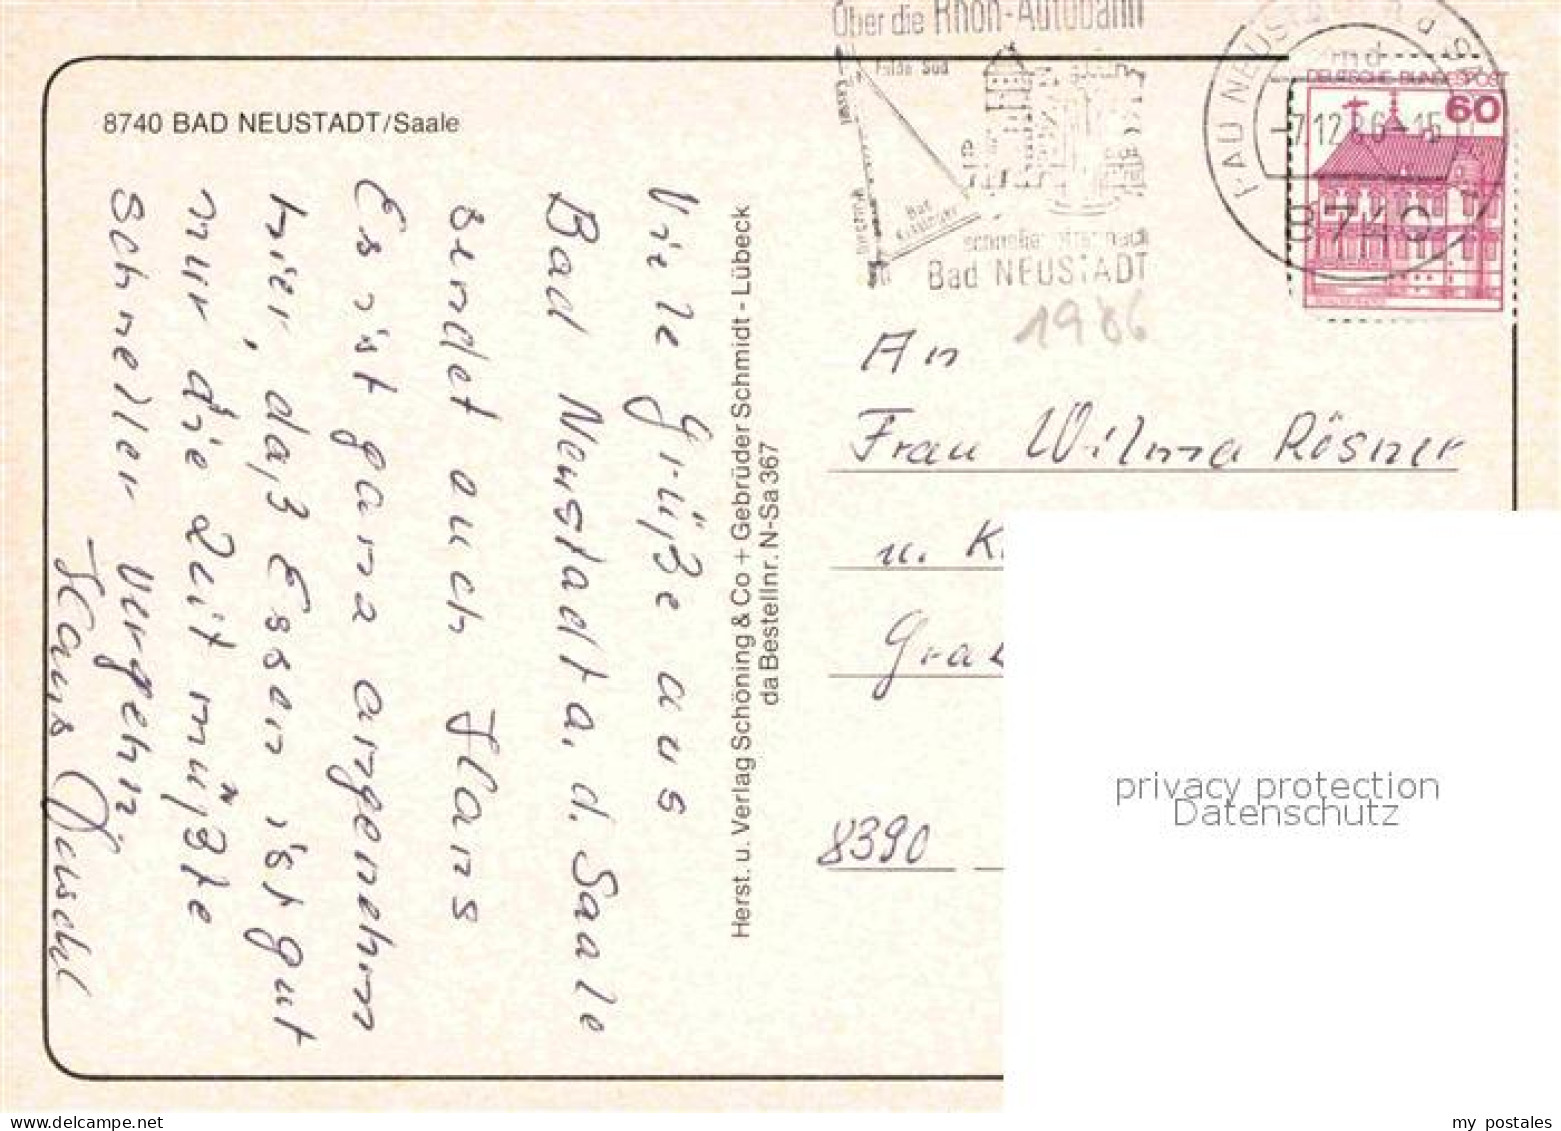 8740 BAD NEUSTADT/Saale
Viele Grüße aus
Bad Neustadt a. d. Saale
sendet euch Hans
Es ist ganz angenehm
hier, daß Essen ist gut
nur die Zeit müßte
schneller vergehn.
Hans
Herst. u. Verlag Schöning & Co + Gebrüder Schmidt - Lübeck
da Bestellnr. N-Sa 367
Über die Rhön-Autobahn
Bad
schneller nach
Bad NEUSTADT
1986
BAD NEUSTADT a d
-7.12.86-15
8740
DEUTSCHE BUNDESPOST
60
An
Frau Wilma Rösner
u. K
Gra
8390
privacy protection
Datenschutz
my postales